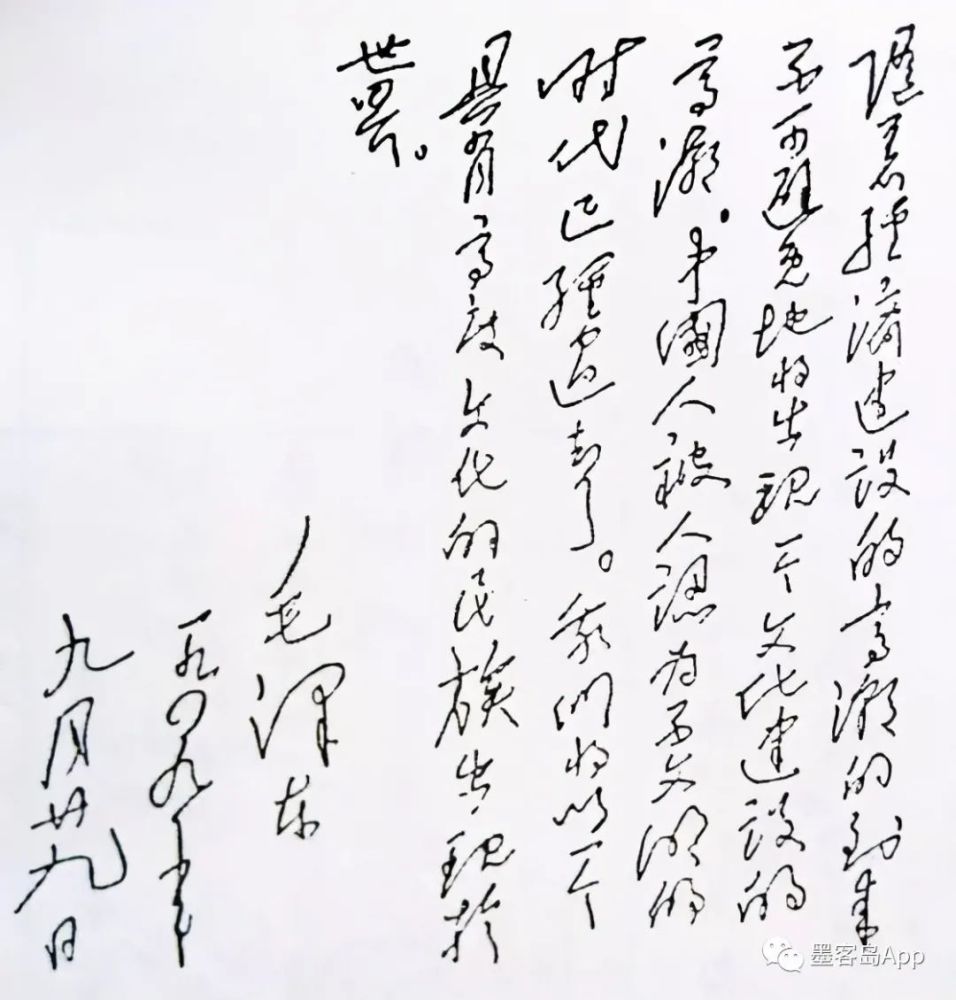 隨着經濟建设的高潮的到来
不可避免地将出現一个文化建设的
高潮。中國人被人認为不文明的
时代已經过去了。我們将以一个
具有高度文化的民族出現於
世界。
毛澤东
一九四九年
九月廿九日
墨客岛App